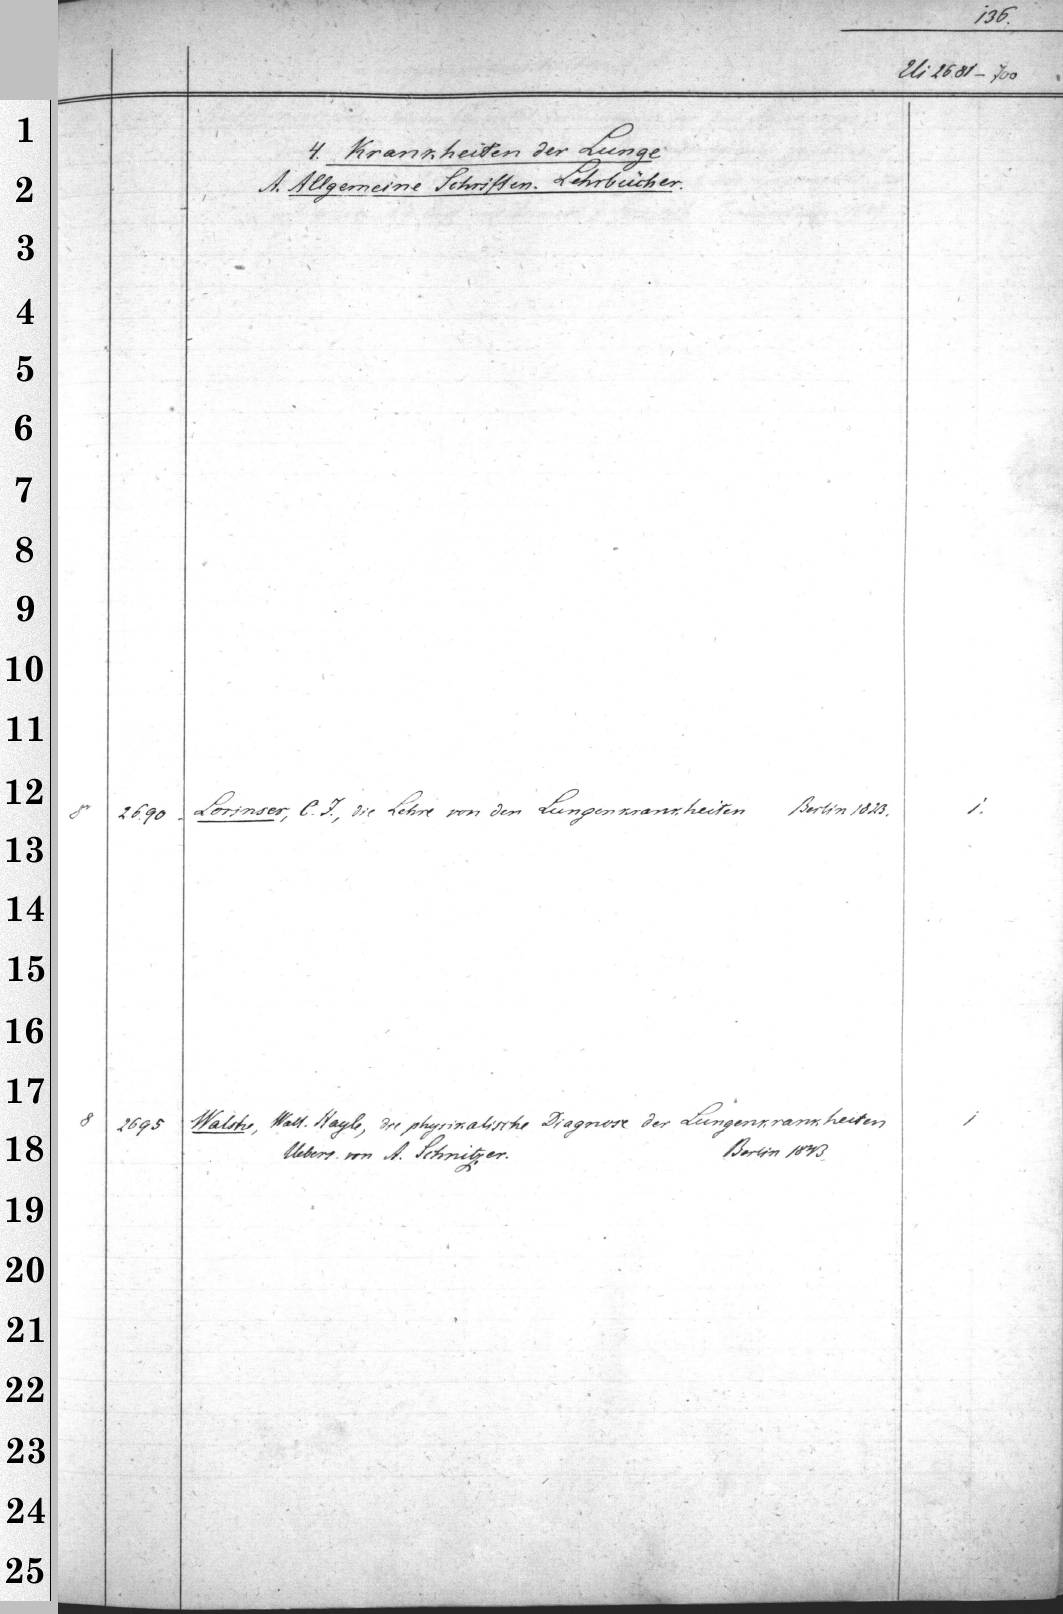 136.
Ui 2681 - 700
4. Krankheiten der Lunge
A. Allgemeine Schriften. Lehrbücher.
8° 2690 Lorinser, C. J., die Lehre von den Lungenkrankheiten Berlin 1823. 1.
8 2695 Walshe, Walt. Hayle, die physikalische Diagnose der Lungenkrankheiten 1
Uebers. von A. Schnitzer. Berlin 1843.
1
2
3
4
5
6
7
8
9
10
11
12
13
14
15
16
17
18
19
20
21
22
23
24
25